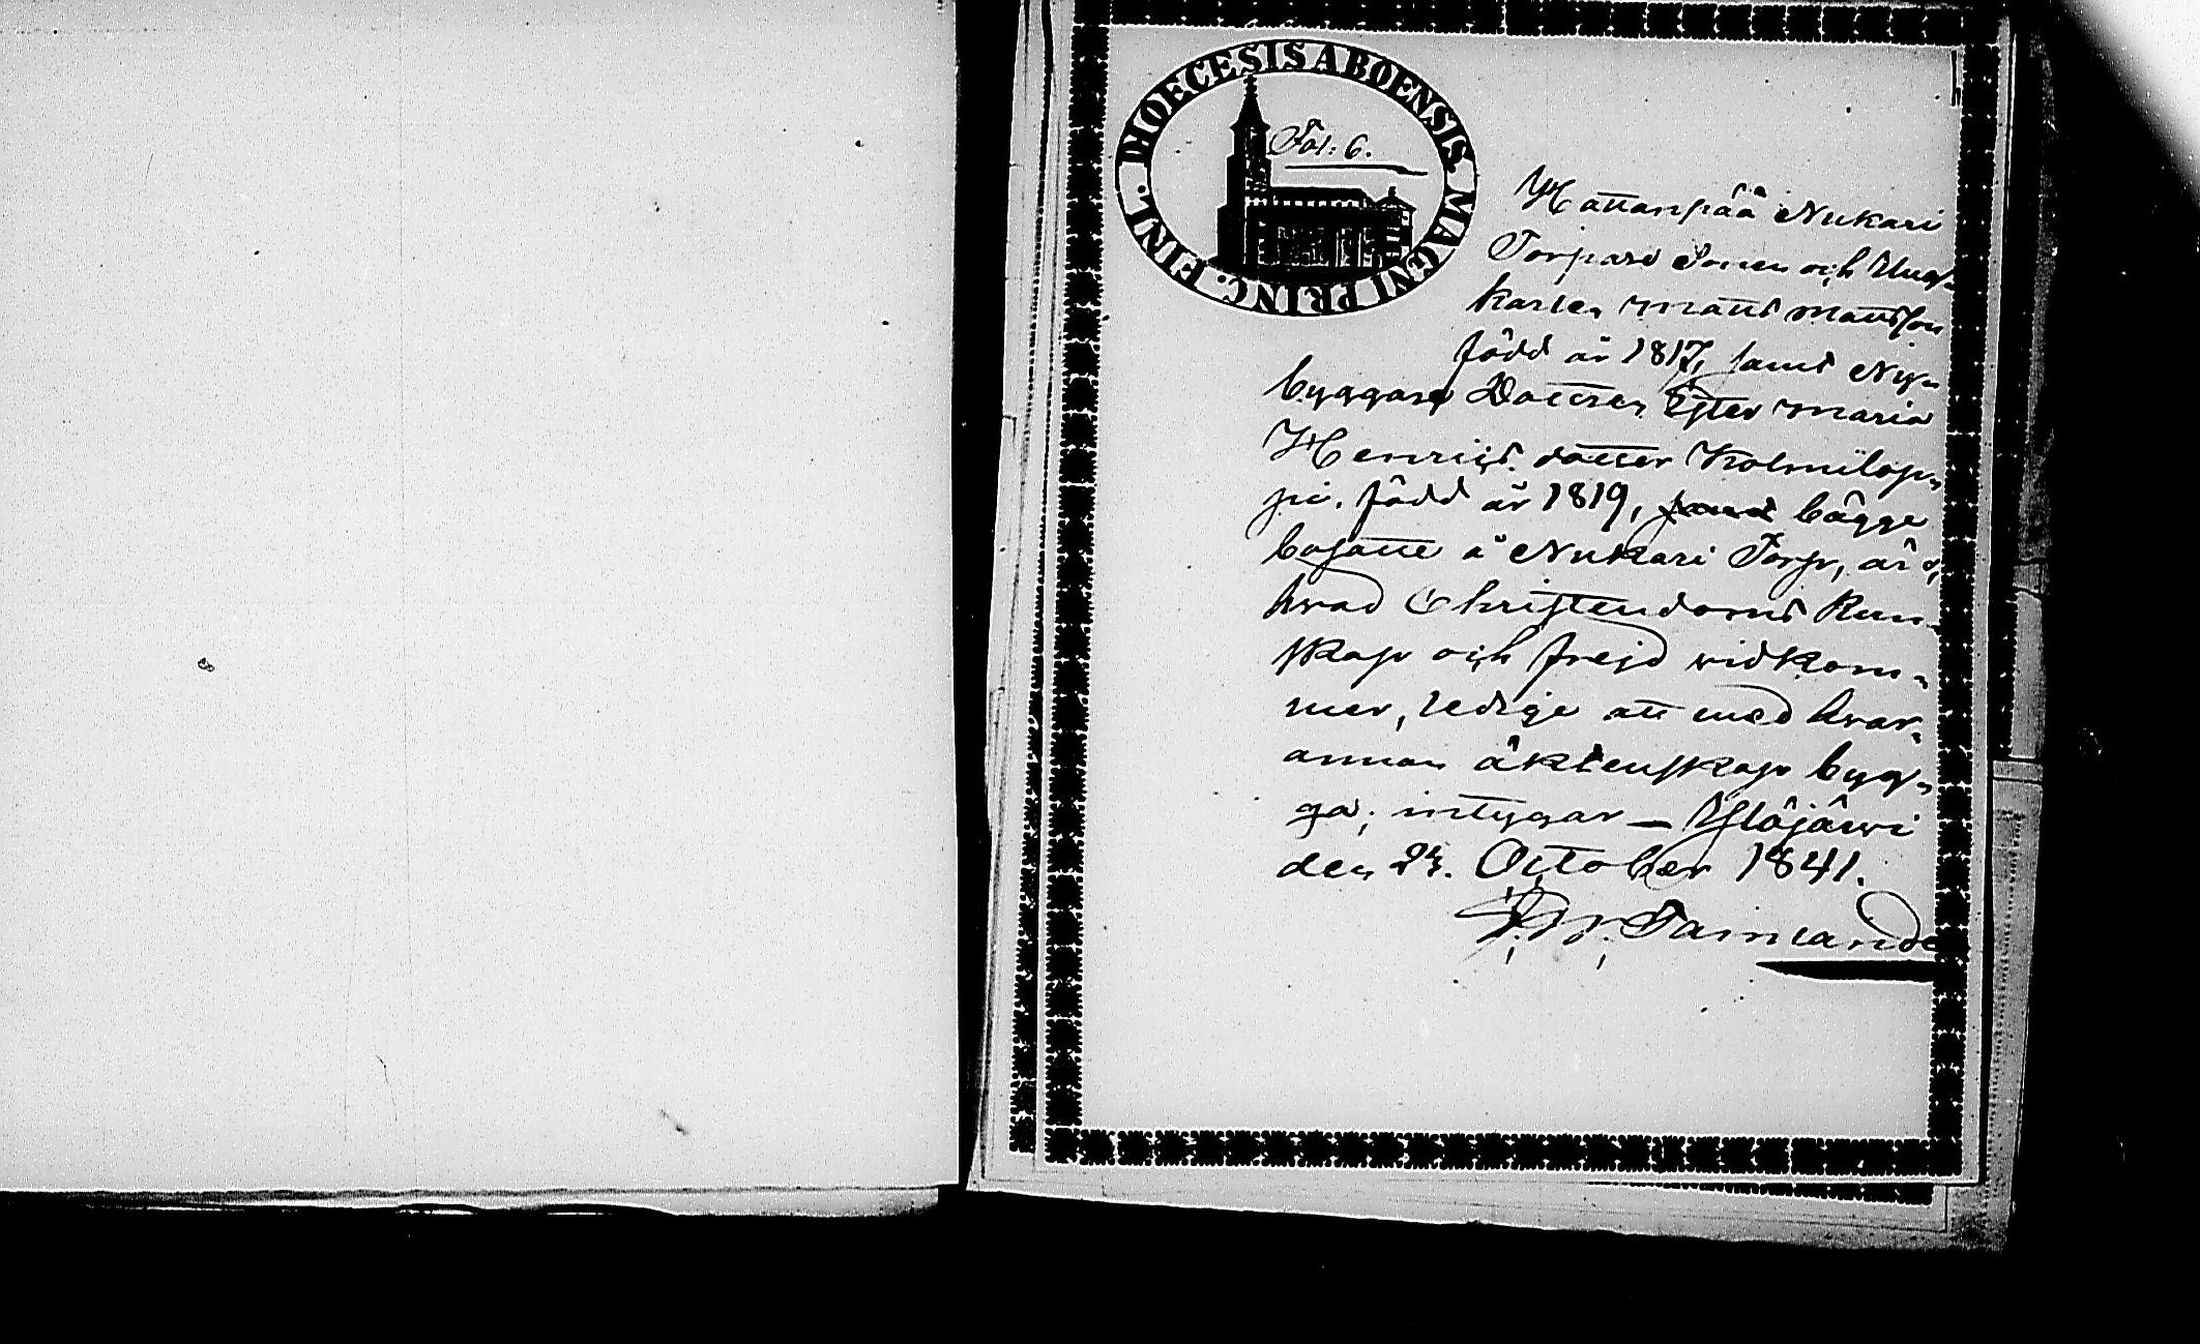 DIOECESIS ABOENSIS MAGNI PRINC. FINL.
Fol: 6.
Hattanpää Nukari
Torpare Sonen och Ung-
karlen Matts Mattsson
född år 1817, samt Ny-
byggare Dottren Ester Maria
Henrics dotter Kolmilop-
pi, född år 1819, samt bägge
bosatte å Nukari Torp, äro,
hvad Christendoms kun-
skap och frejd vidkom-
mer, ledige att med hvar-
annan äktenskap byg-
ga; intygar — Ylöjärvi
den 24. October 1841.
Tainlande